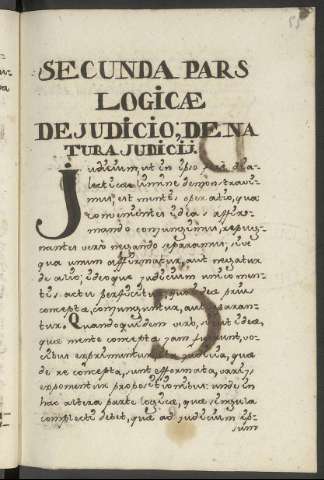 SECUNDA PARS
LOGICÆ
DE JUDICIO; DE NA
TURA JUDICII.
Judicium, ut in ipso
lecticæ limine demonstravi-
mus, est mentis operatio, qua
convenientes ideas affir-
mando conjungimus, repug-
nantes vero negando separamus, sive
qua unum affirmatur, aut negatur
de alio; ideoque judicium unico men-
tis actu perficitur, quo ideæ prius
conceptæ, conjunguntur, aut separan-
tur. Quandoquidem vero, sicut ideæ,
quæ mente conceptæ jam sunt, vo-
cibus exprimuntur, judicia, quæ
de re concepta, sunt efformata, variis
exponuntur propositionibus: unde in
hac altera parte logicæ, quæ singula
complecti debet, quæ ad judicium ip-
sum